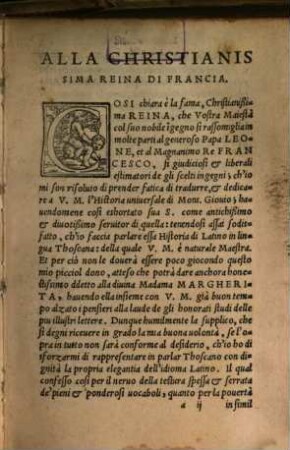 ALLA CHRISTIANIS
SIMA REINA DI FRANCIA.
COSI chiara è la fama, Christianissi
ma REINA, che Vostra Maiestà
col suo nobile ĩgegno si rassomiglia in
molte parti al generoso Papa LEO-
NE, et al Magnanimo Re FRAN
CESCO, sì giudiciosi & liberali
estimatori de gli scelti ingegni; ch'io
mi son risoluto di prender fatica di tradurre, et dedica-
re a V. M. l'Historia universale di Mons. Giouio; ha-
uendomene così exhortato sua S. come antichissimo
& diuotissimo seruitor di quella: tenendosi assai sodis-
fatto, ch'io faccia parlare essa Historia di Latino in lin-
gua Thoscana: della quale V. M. è naturale Maestra.
Et per ciò non le douerà essere poco giocondo questo
mio picciol dono, atteso che potrà dare anchora hone-
stissimo diletto alla diuina Madama MARGHERI
TA, hauendo ella insieme con V. M. già buon tem-
po alzato i pensieri alla laude de gli honorati studi delle
piu illustri lettere. Dunque humilmente la supplico, che
si degni riceuere in grado la mia buona uolontà, se l'o-
pra in tutto non sarà conforme al desiderio, ch'io ho di
isforzarmi di rappresentare in parlar Thoscano con di-
gnità la propria elegantia dell'idioma Latino. Il qual
confesso così per il neruo della testura spessa & serrata
de' pieni & ponderosi uocaboli, quanto per la pouertà
a ij in simil